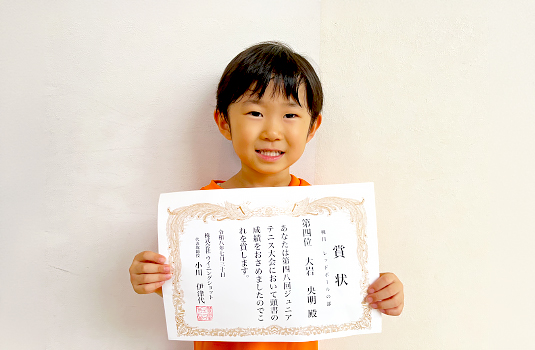 賞状
種目 レッドボールの部
第四位 大岩 央明 殿
あなたは第四八回ジュニア
テニス大会において頭書の
成績をおさめましたのでこ
れを賞します。
令和八年七月二十日
株式会社ウイニングショット
代表取締役 小川 伊津代